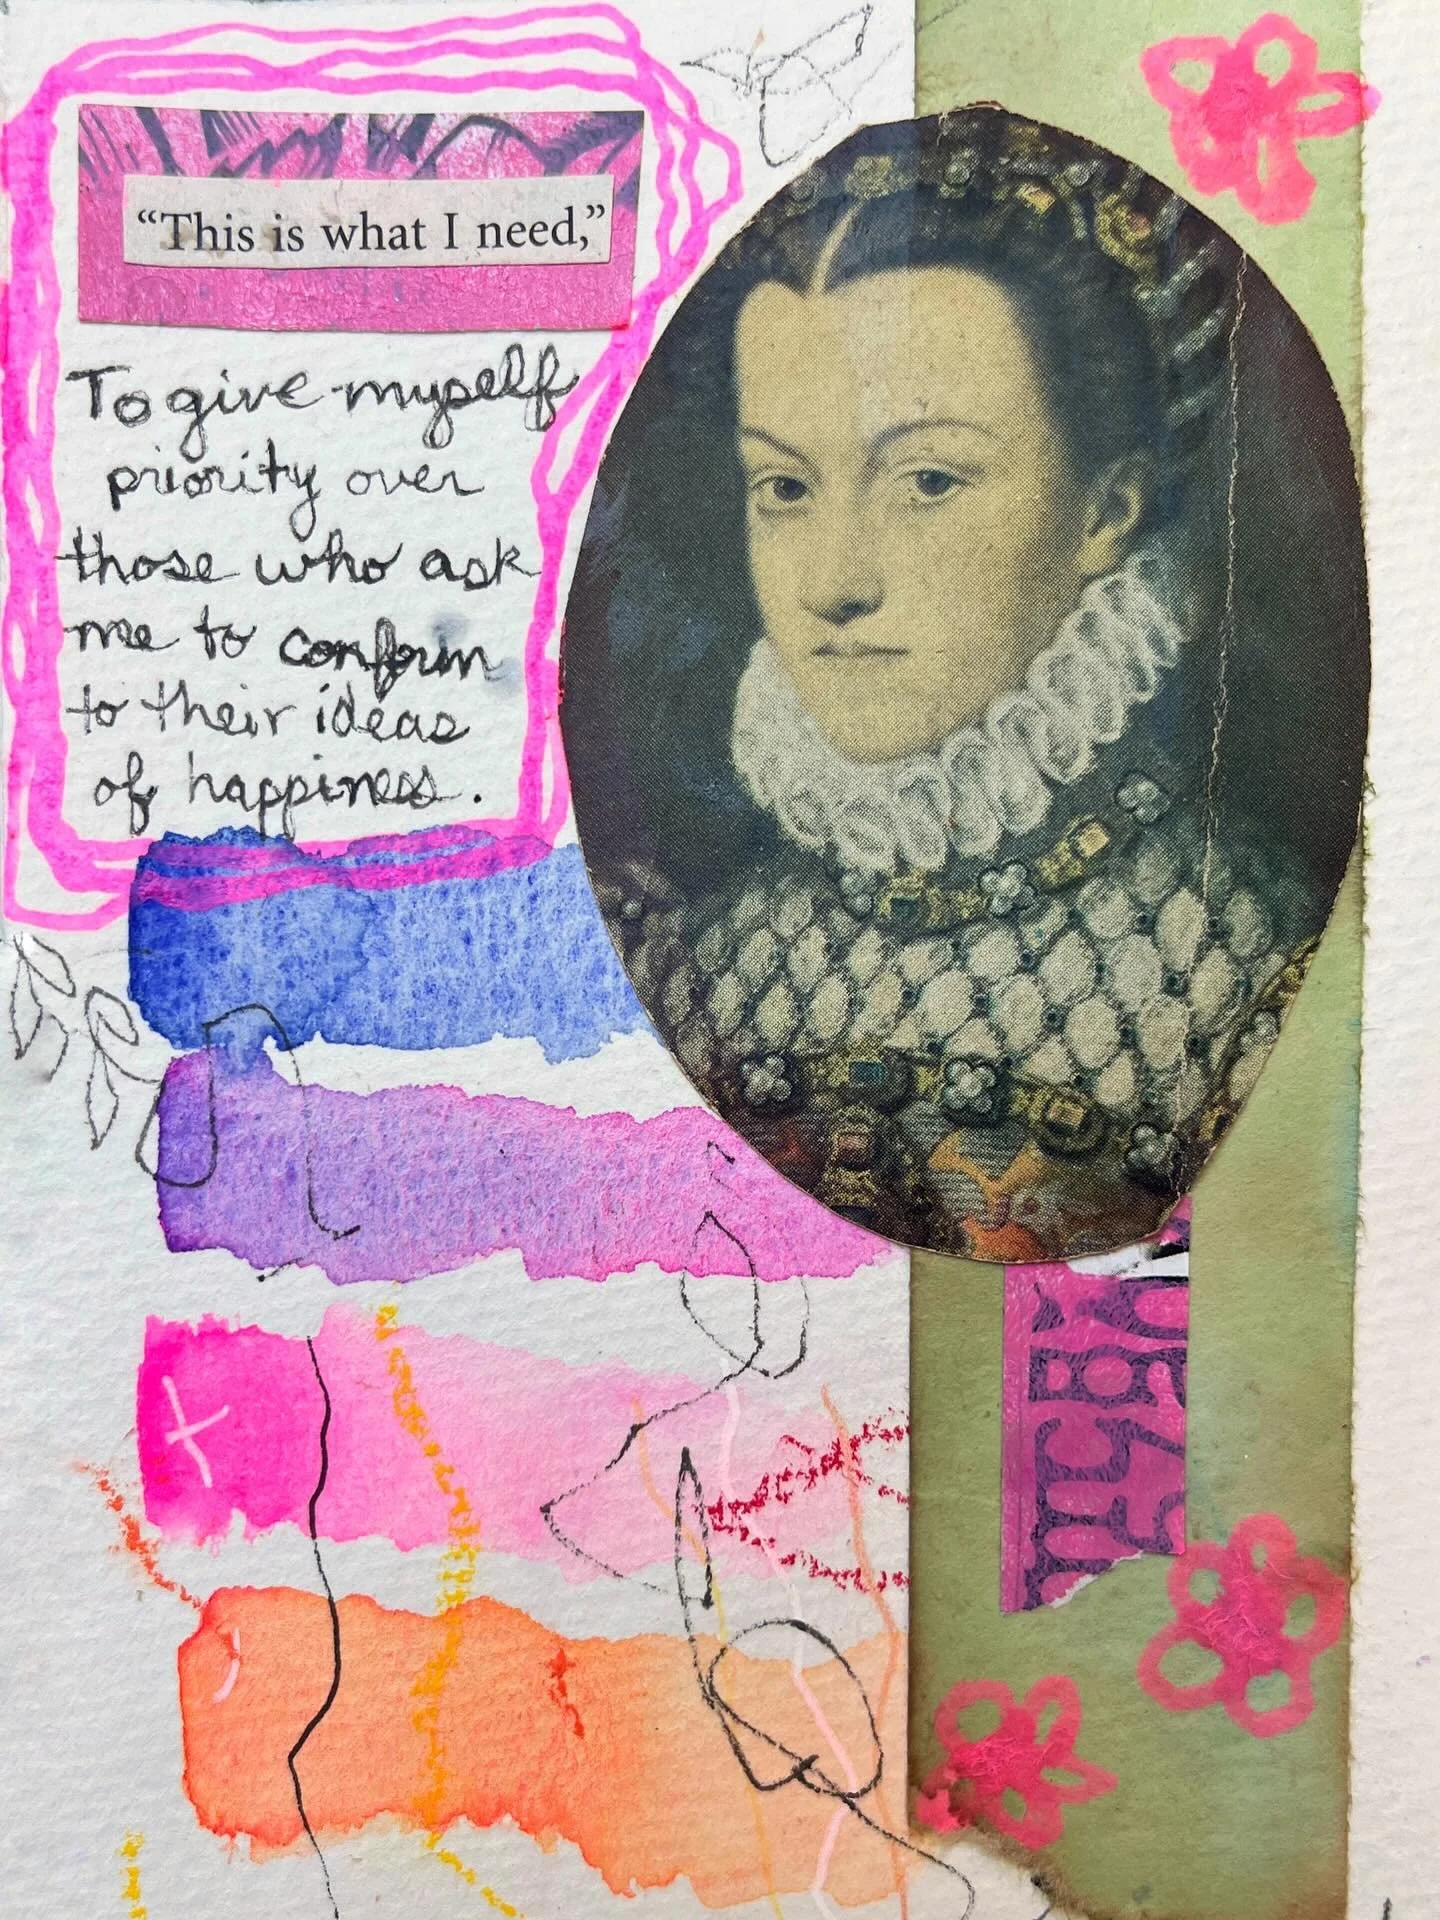 “This is what I need,”
To give myself
priority over
those who ask
me to conform
to their ideas
of happiness.